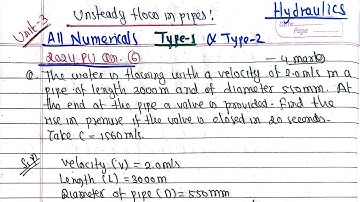 Hydraulics
Unsteady flow in pipes!
Unit-3
All Numericals Type-1 & Type-2
Date
Page
2024 PU Qn. (6) — 4 marks
Q. The water is flowing with a velocity of 2.0m/s in a
pipe of length 3000m and of diameter 550mm. At
the end of the pipe a valve is provided. Find the
rise in pressure if the valve is closed in 20 seconds.
Take C = 1560m/s.
Soln
Velocity (v) = 2.0m/s
Length (L) = 3000m
Diameter of pipe (D) = 550mm